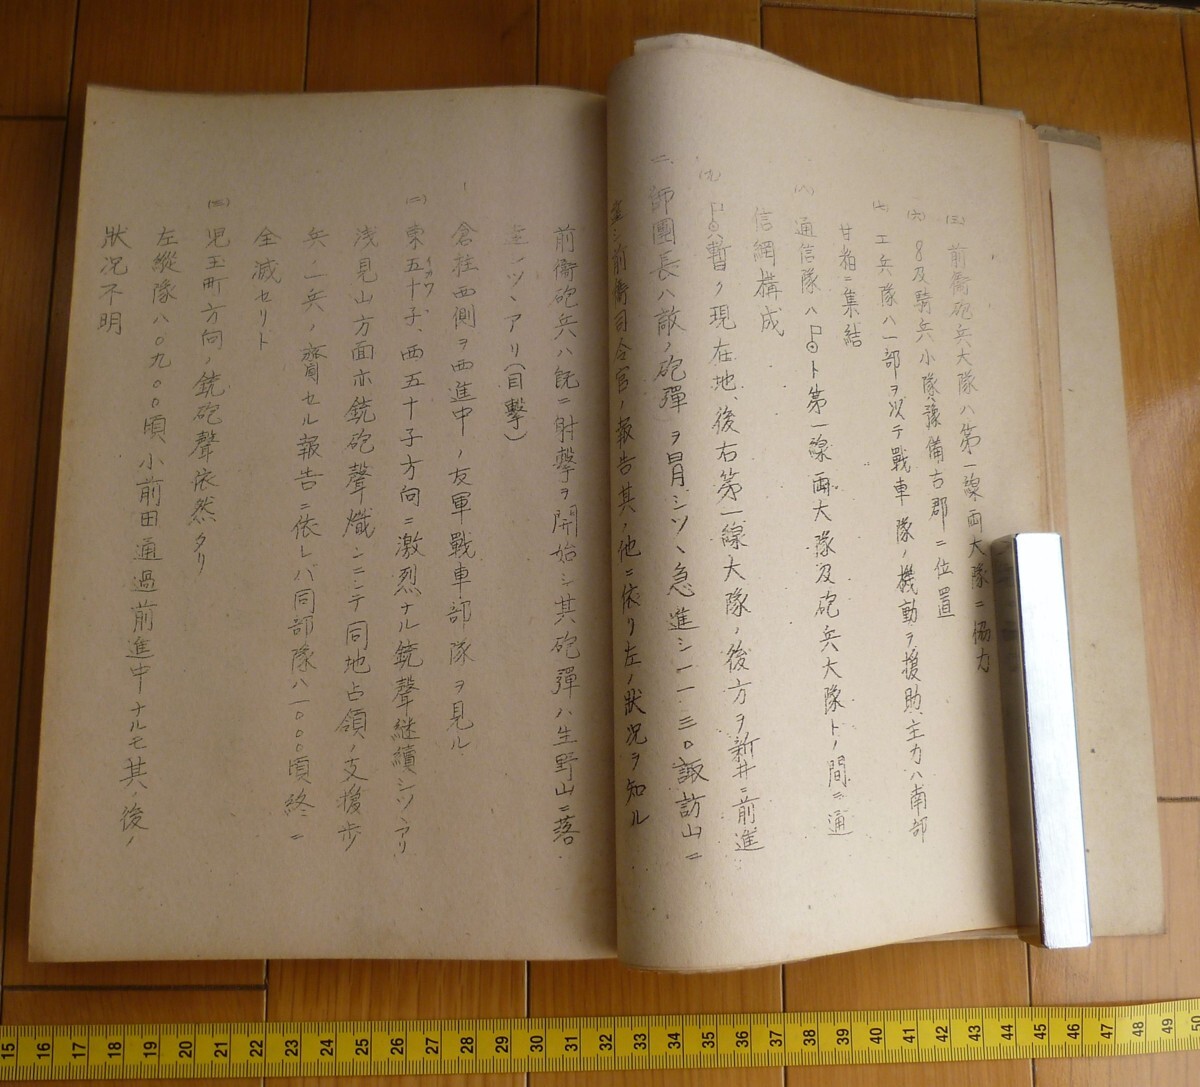 (三) 前衞砲兵大隊ハ第一線両大隊ニ協力
(六) 8及騎兵小隊豫備古郡ニ位置
(七) 工兵隊ハ一部ヲ以テ戰車隊ノ機動ヲ援助主力ハ南部
甘粕ニ集結
(八) 通信隊ハ ト第一線両大隊及砲兵大隊トノ間ニ通
信網構成
(九) 暫ク現在地、後右第一線大隊ノ後方ヲ新井ニ前進
二、師團長ハ敵ノ砲彈ヲ冒シツヽ急進シ一一三〇諏訪山ニ
シ前衞司令官ノ報告其ノ他ニ依リ左ノ狀況ヲ知ル
前衞砲兵ハ既ニ射擊ヲ開始シ其砲彈ハ生野山ニ落
シツヽアリ(目擊)
倉拄西側ヲ西進中ノ友軍戰車部隊ヲ見ル
(二) 東五十子、西五十子方向ニ激烈ナル銃聲継續シツヽアリ
浅見山方面亦銃砲聲熾ンニシテ同地占領ノ支援步
兵ノ一兵ノ齎セル報告ニ依レバ同部隊ハ一〇〇〇頃終ニ
全滅セリト
(三) 児玉町方向ノ銃砲聲依然タリ
左縱隊ハ〇九〇〇頃小前田通過前進中ナルモ其ノ後ノ
狀况不明
15 16 17 18 19 20 21 22 23 24 25 26 27 28 29 30 31 32 33 34 35 36 37 38 39 40 41 42 43 44 45 46 47 48 49 50